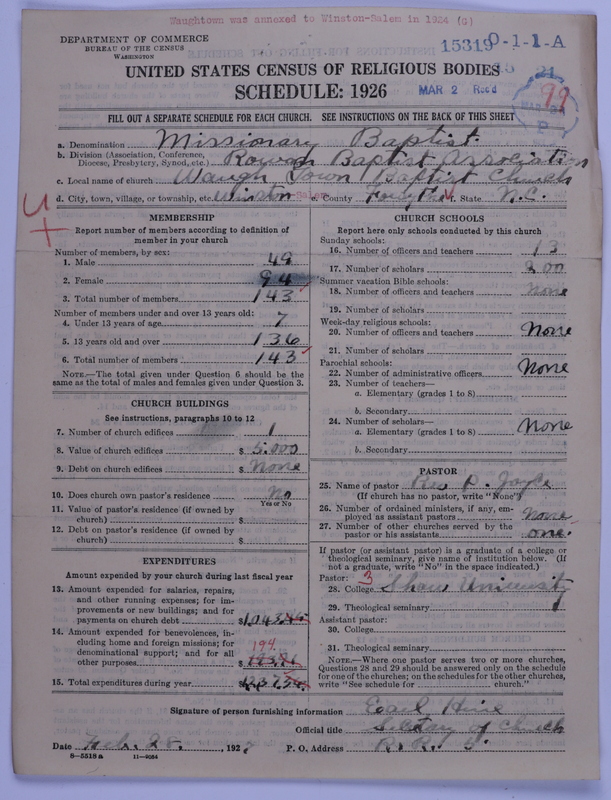 Waughtown was annexed to Winston-Salem in 1924 (G)
DEPARTMENT OF COMMERCE
BUREAU OF THE CENSUS
WASHINGTON
15319 0-1-1-A
UNITED STATES CENSUS OF RELIGIOUS BODIES
SCHEDULE: 1926
MAR 2 Rec'd
99
FILL OUT A SEPARATE SCHEDULE FOR EACH CHURCH. SEE INSTRUCTIONS ON THE BACK OF THIS SHEET
a. Denomination Missionary Baptist
b. Division (Association, Conference, Diocese, Presbytery, Synod, etc.) Rowan Baptist Association
c. Local name of church Waugh Town Baptist Church
d. City, town, village, or township, etc. Winston Salem e. County f. State N.C.
MEMBERSHIP
Report number of members according to definition of
member in your church
Number of members, by sex:
1. Male 49
2. Female 94
3. Total number of members 143
Number of members under and over 13 years old:
4. Under 13 years of age 7
5. 13 years old and over 136
6. Total number of members 143
NOTE.—The total given under Question 6 should be
the same as the total of males and females given under Question 3.
CHURCH BUILDINGS
See instructions, paragraphs 10 to 12
7. Number of church edifices 1
8. Value of church edifices $ 5.000
9. Debt on church edifices $ None
10. Does church own pastor's residence No
Yes or No
11. Value of pastor's residence (if owned by
church) $
12. Debt on pastor's residence (if owned by
church) $
EXPENDITURES
Amount expended by your church during last fiscal year
13. Amount expended for salaries, repairs,
and other running expenses; for im-
provements or new buildings; and for
payments on church debt $
14. Amount expended for benevolences, in-
cluding home and foreign missions; for
denominational support; and for all
other purposes $ 194.
15. Total expenditures during year $
CHURCH SCHOOLS
Report here only schools conducted by this church
Sunday schools:
16. Number of officers and teachers 13
17. Number of scholars 200
Summer vacation Bible schools:
18. Number of officers and teachers None
19. Number of scholars
Week-day religious schools:
20. Number of officers and teachers None
21. Number of scholars
Parochial schools:
22. Number of administrative officers None
23. Number of teachers—
a. Elementary (grades 1 to 8)
b. Secondary
24. Number of scholars— None
a. Elementary (grades 1 to 8)
b. Secondary
PASTOR
25. Name of pastor Rev P. Joyce
(If church has no pastor, write "None")
26. Number of ordained ministers, if any, em-
ployed as assistant pastors none
27. Number of other churches served by the
pastor or his assistants one.
If pastor (or assistant pastor) is a graduate of a college or
theological seminary, give name of institution below. (If
not a graduate, write "No" in the space indicated.)
Pastor: 3
28. College Shaw University
29. Theological seminary
Assistant pastor:
30. College
31. Theological seminary
NOTE.—Where one pastor serves two or more churches,
Questions 28 and 29 should be answered only on the schedule
for one of the churches; on the schedules for the other churches,
write "See schedule for church."
Signature of person furnishing information
Official title of church
Date Feb. 28. 192 P. O. Address R. R. 5.
8-5518a 11-9084